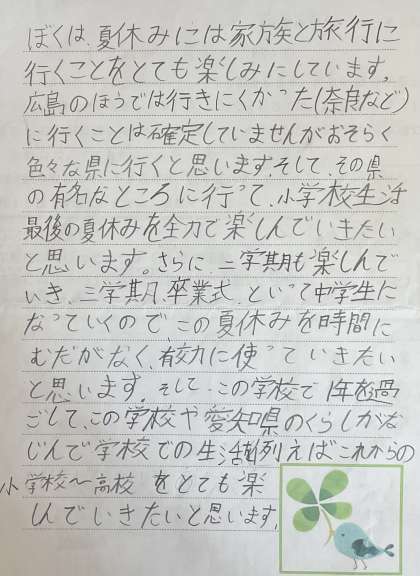 ぼくは、夏休みには家族と旅行に
行くことをとても楽しみにしています。
広島のほうでは行きにくかった(奈良など)
に行くことは確定していませんがおそらく
色々な県に行くと思います。そして、その県
の有名なところに行って、小学校生活
最後の夏休みを全力で楽しんでいきたい
と思います。さらに、二学期も楽しんで
いき、三学期、卒業式、といって中学生に
なっていくので、この夏休みを時間に
むだがなく、有効に使っていきたい
と思います。そして、この学校で1年を過
ごして、この学校や愛知県のくらしがな
じんで学校での生活を例えばこれからの
小学校〜高校をとても楽
しんでいきたいと思います。